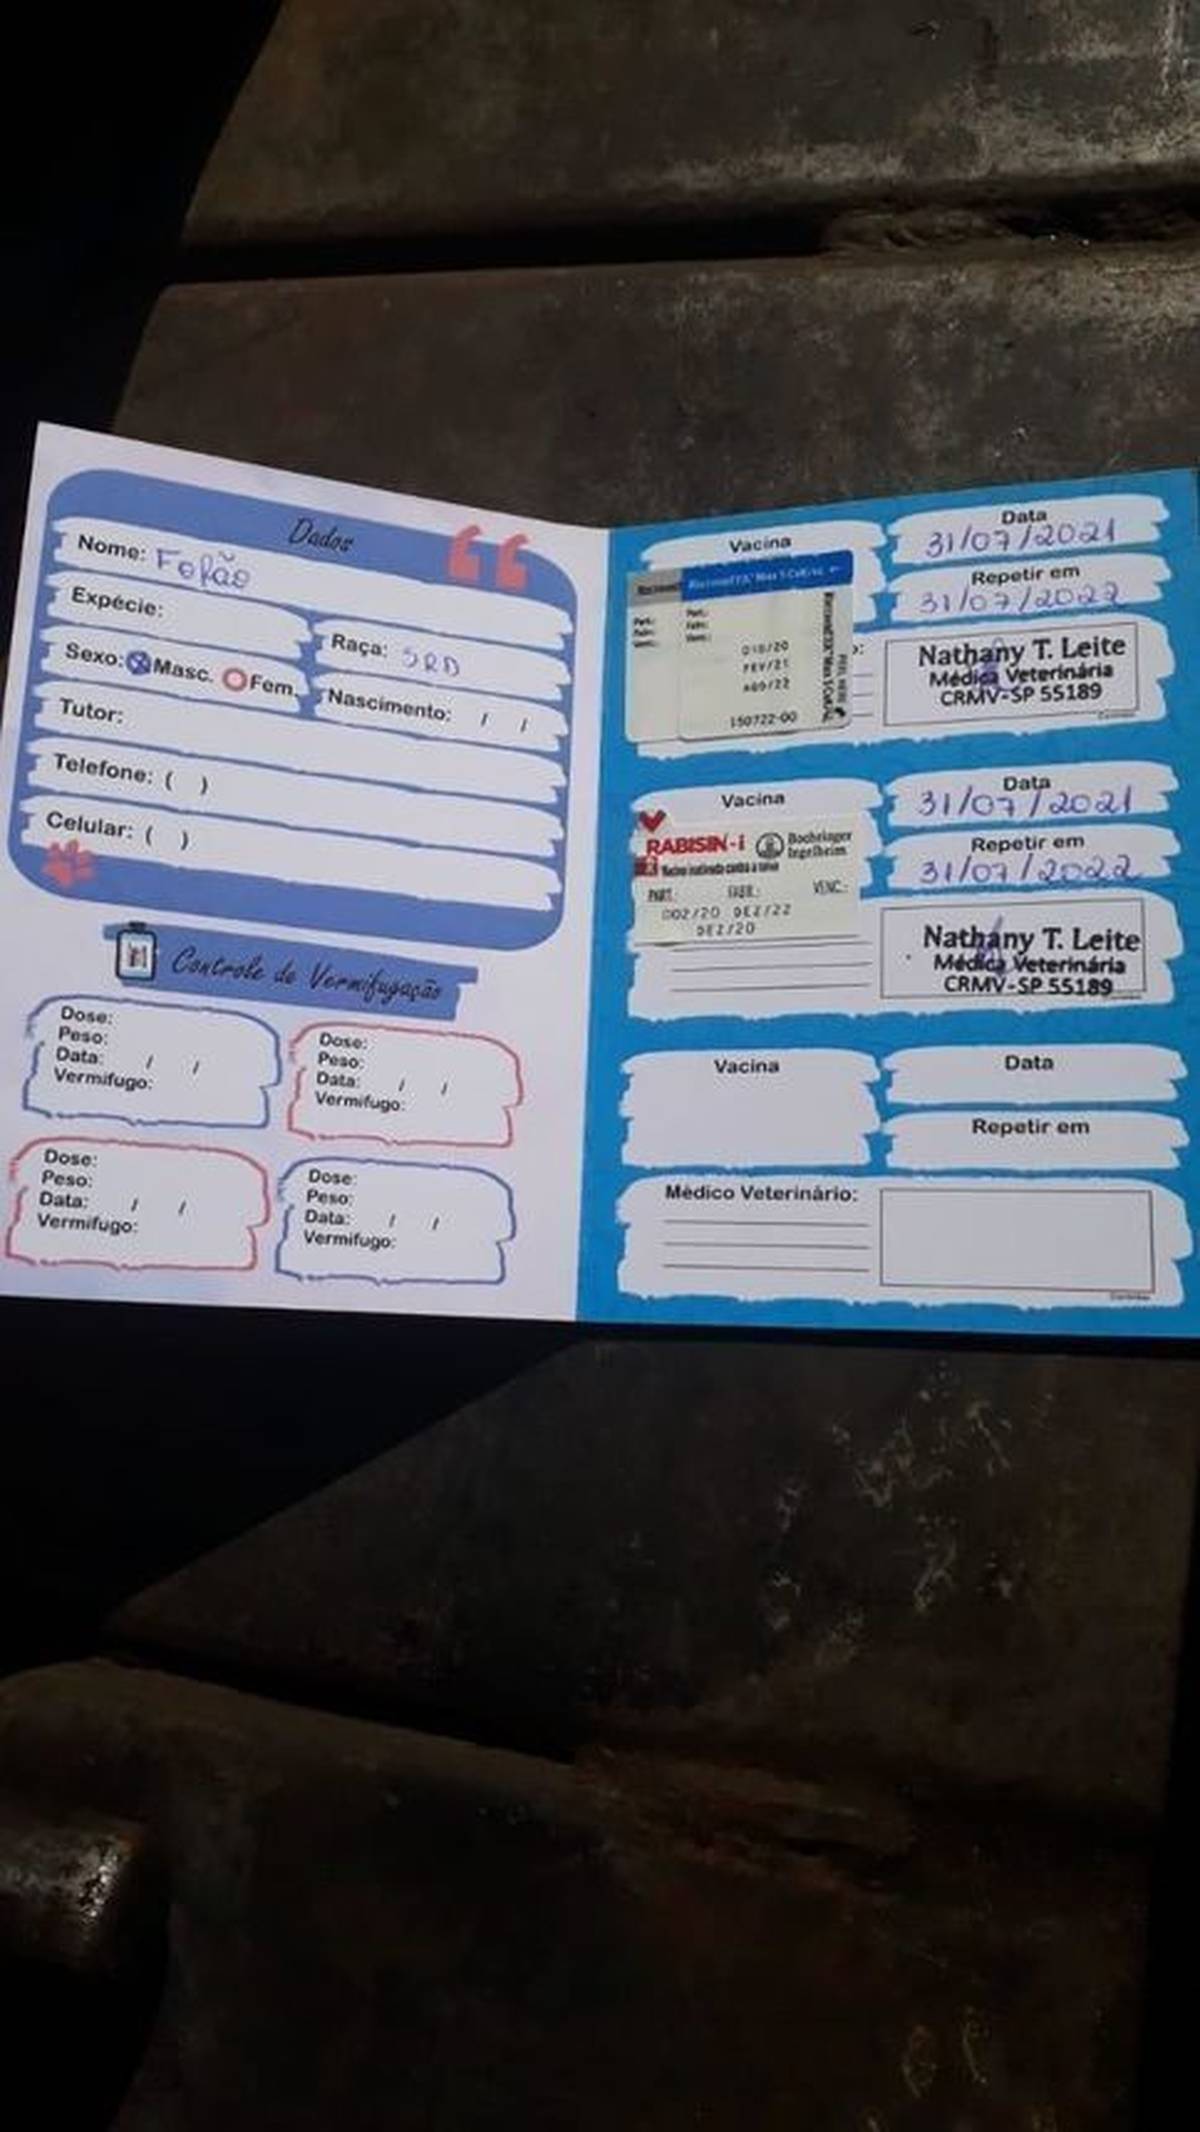 Dados
Nome: Fofão
Expécie:
Raça: SRD
Sexo: Masc. Fem.
Nascimento: / /
Tutor:
Telefone: ( )
Celular: ( )
Controle de Vermifugação
Dose:
Peso:
Data: / /
Vermifugo:
Dose:
Peso:
Data: / /
Vermifugo:
Dose:
Peso:
Data: / /
Vermifugo:
Dose:
Peso:
Data: / /
Vermifugo:
Vacina
Part.:
Fabr.:
Venc.:
010/20
FEV/21
AGO/22
150722-00
Data
31/07/2021
Repetir em
31/07/2022
Nathany T. Leite
Médica Veterinária
CRMV-SP 55189
Vacina
RABISIN-i
Boehringer
Ingelheim
Vacina inativada contra a raiva
PART.: FABR.: VENC.:
002/20 DEZ/22
DEZ/20
Data
31/07/2021
Repetir em
31/07/2022
Nathany T. Leite
Médica Veterinária
CRMV-SP 55189
Vacina
Data
Repetir em
Médico Veterinário: